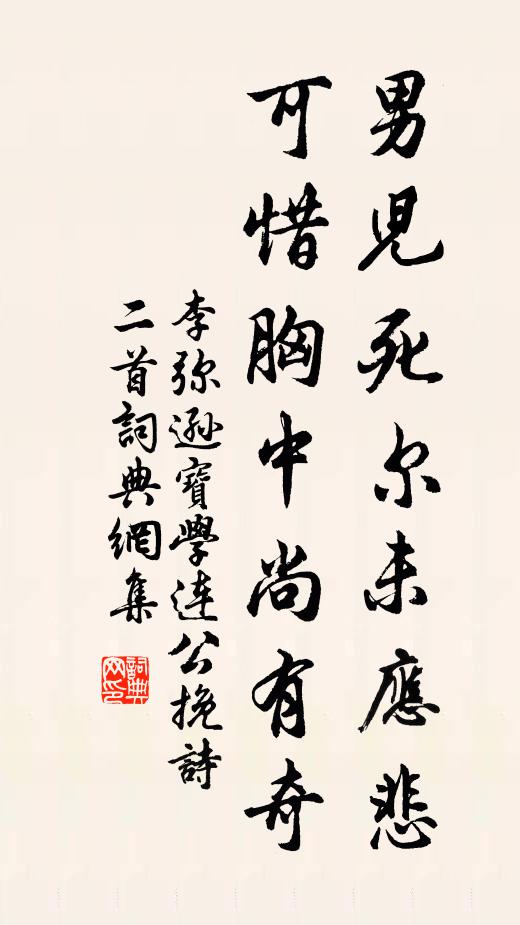 男兒死尔未應悲
可惜胸中尚有奇
李弥遜寶學連公挽詩
二首詞典網集
詞典网印